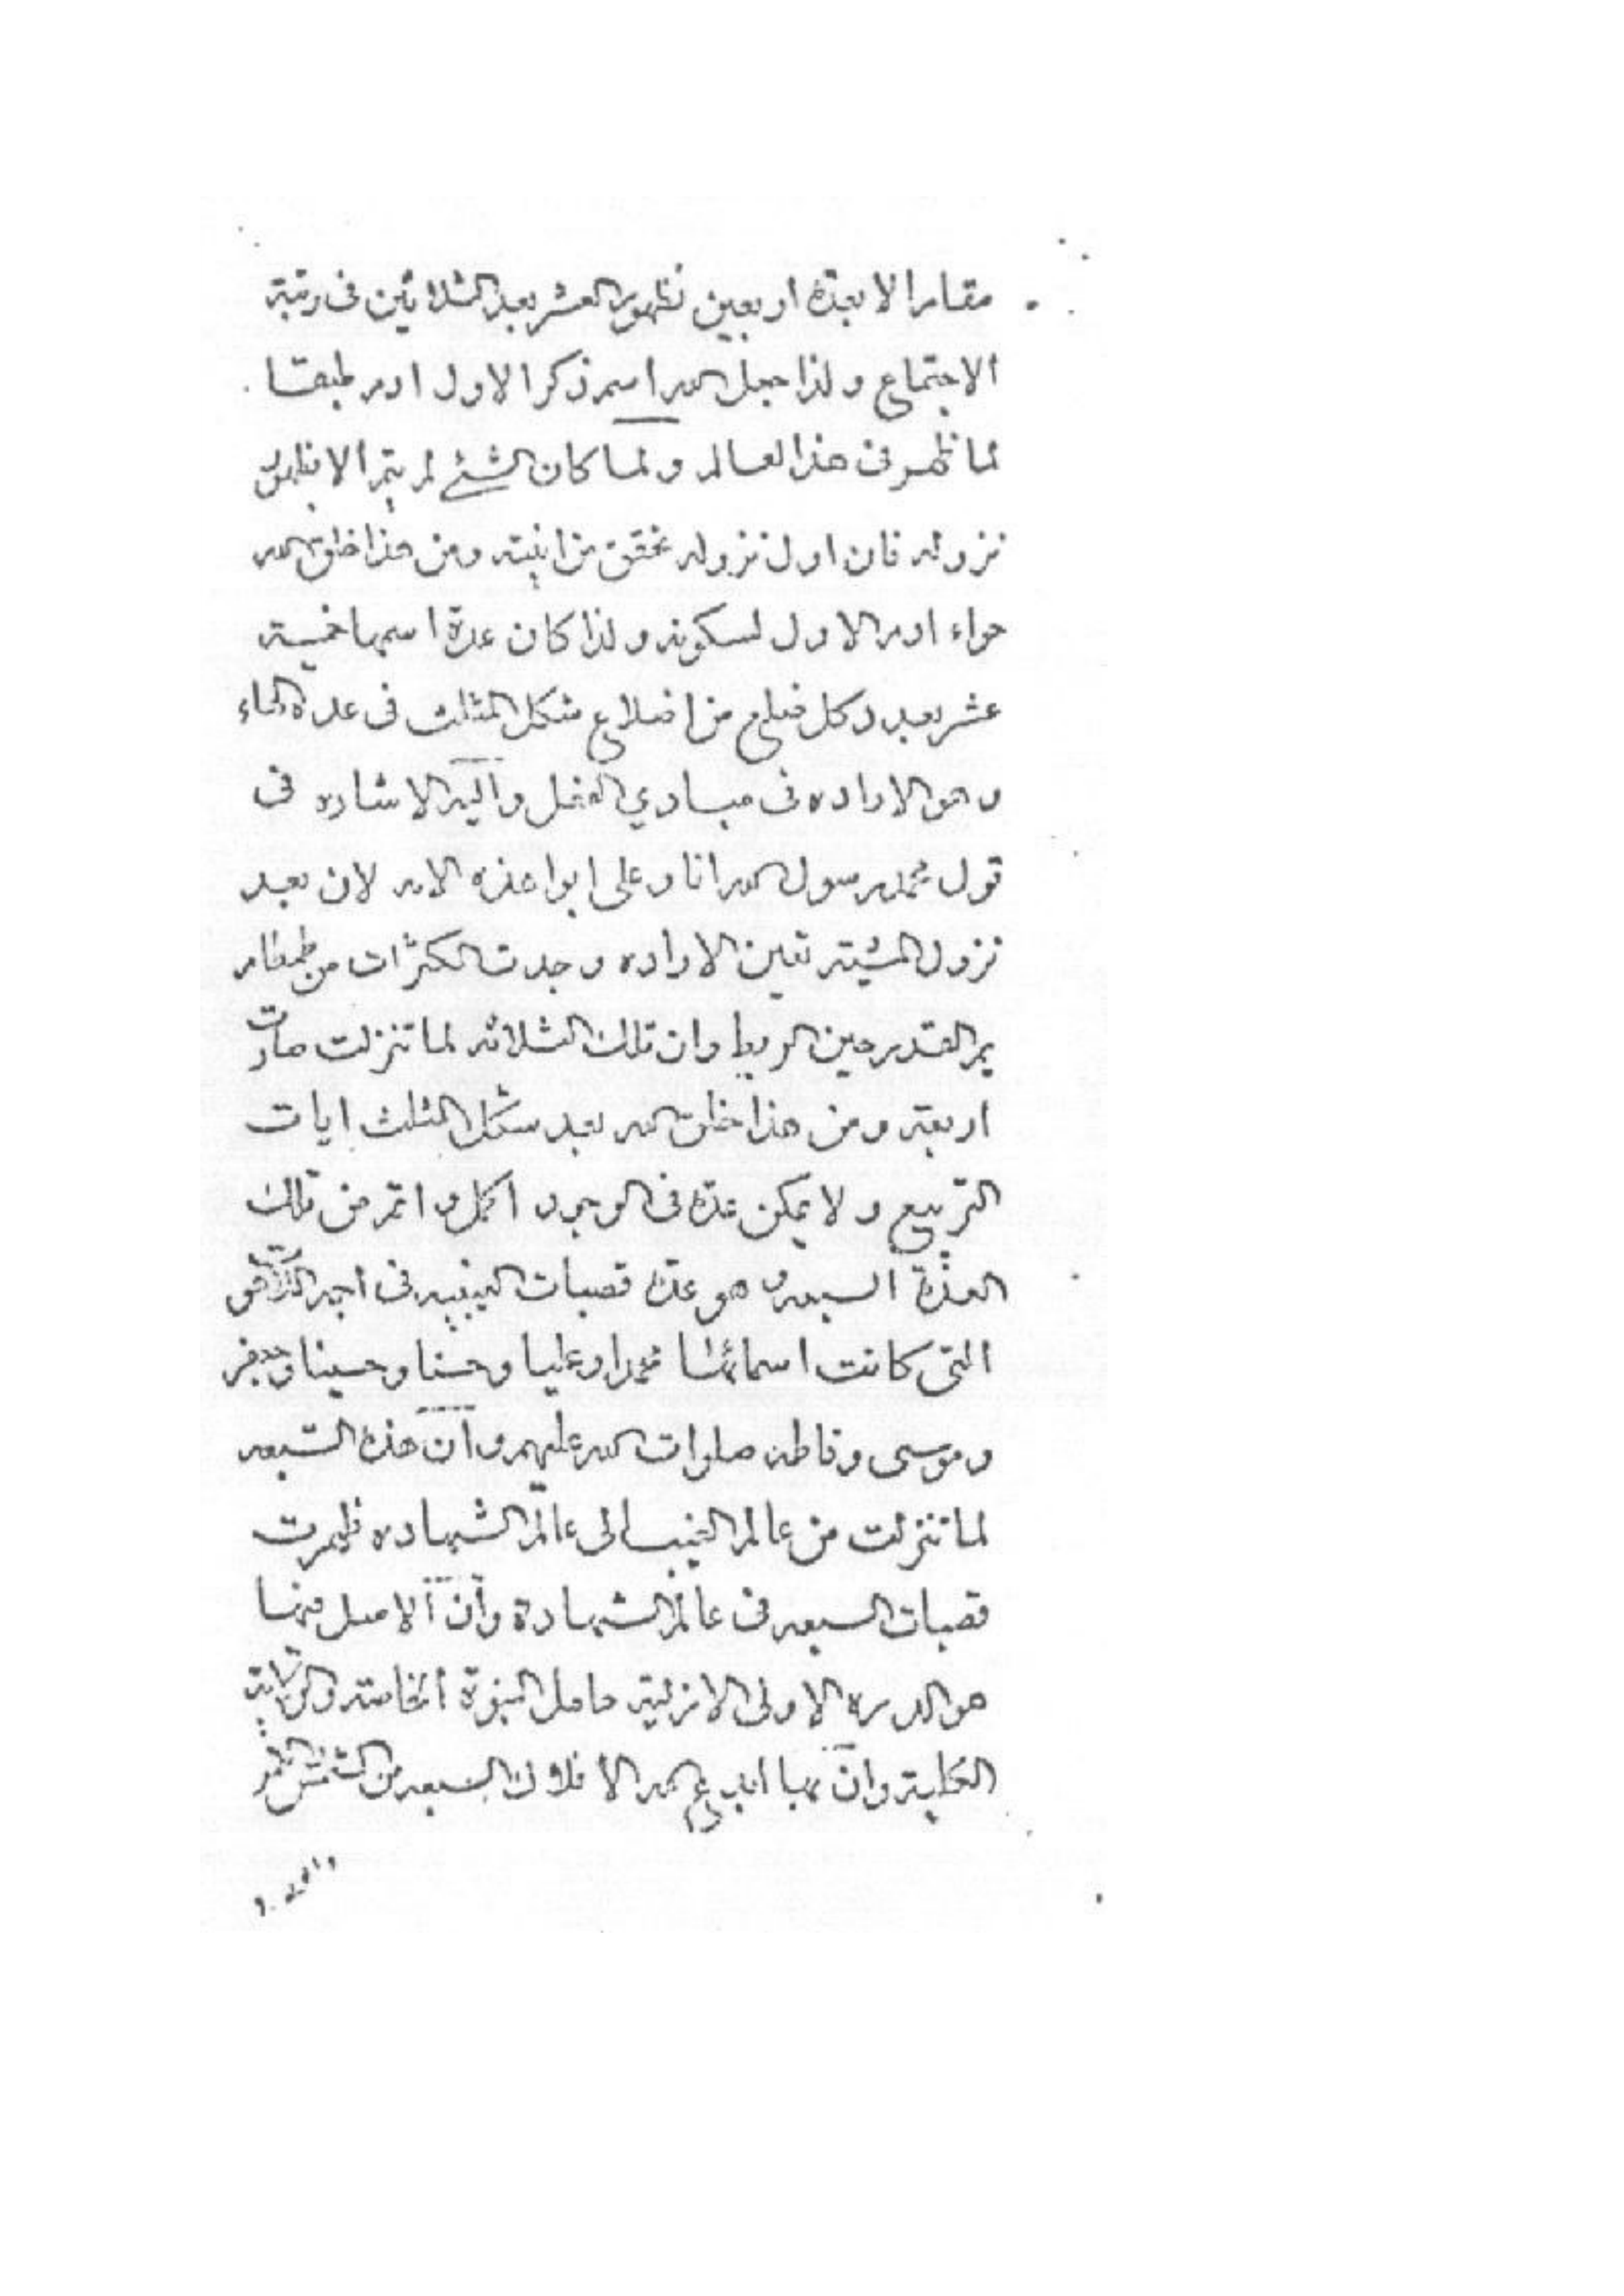 مقاما الا بعدة اربعين لظهور العشر بعد الثلاثين فى رتبة
الاجتماع ولذا جعل الله اسم ذكر الاول ادم طبقا
لما ظهر فى هذا العالم ولما كان الشئ لم يتم الا بظهور
نزوله فان اول نزوله تحقق من انيته ومن هذا خلق الله
حواء ادم الاول لسكونه ولذا كان عدة اسمها خمسة
عشر بعدد كل ضلع من اضلاع شكل المثلث فى عدة الحاء
وهو الاراده فى مبادي الفعل واليه الاشاره فى
قول محمد رسول الله انا وعلى ابوا هذه الامه لان بعد
نزول المشية تعين الاراده وجدت الكثرات من طمطام
يم القدر حين الربط وان تلك الثلاثه لما تنزلت صارت
اربعة ومن هذا خلق الله بعد شكل المثلث ايات
التربيع ولا يمكن عدة فى الوجود اكمل واتم من تلك
العدة السبعه وهو عدة قصبات الغيبيه فى اجمة اللاهوت
التى كانت اسمائها محمدا وعليا وحسنا وحسينا وجعفر
وموسى وفاطمه صلوات الله عليهم وان هذه السبعه
لما تنزلت من عالم الغيب الى عالم الشهاده ظهرت
قصبات السبعه فى عالم الشهادة وان الاصل فيها
هو الدره الاولى الازلية حامل النبوة الخاصة والولاية
الكلية وان بها ابدع الله الافلاك السبعه من الشمس والقمر